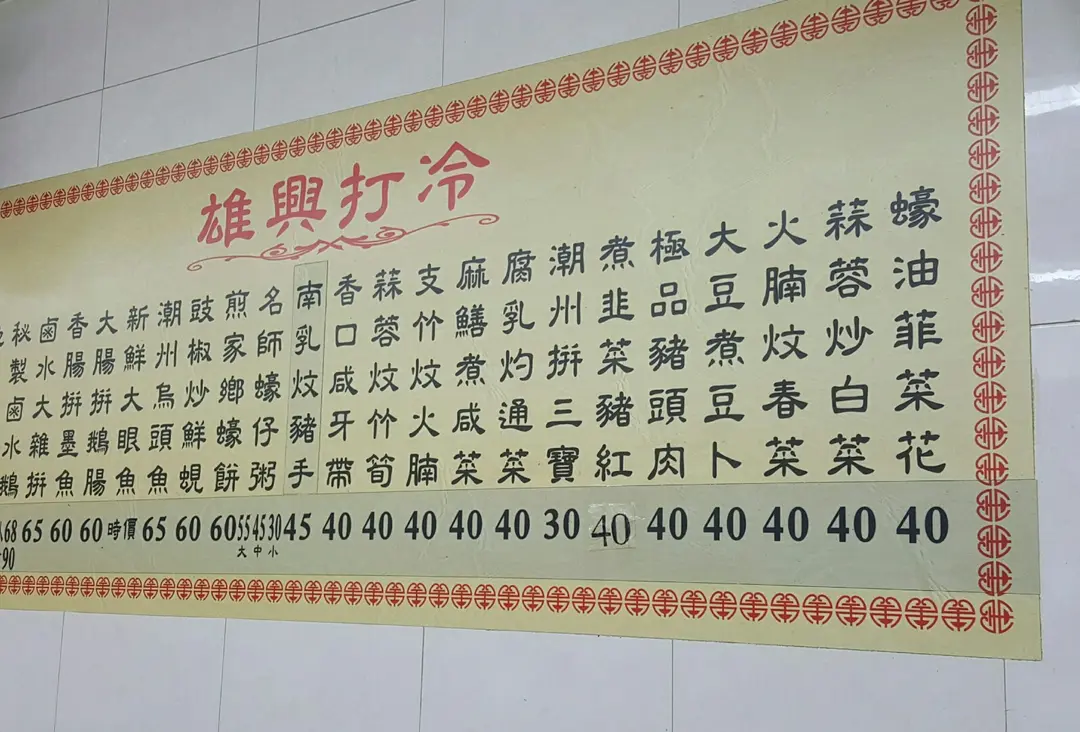 雄興打冷
蠔油菲菜花 40
蒜蓉炒白菜 40
火腩炆春菜 40
大豆煮豆卜 40
極品豬頭肉 40
煮韭菜豬紅 40
潮州拼三寶 30
腐乳灼通菜 40
麻鱔煮咸菜 40
支竹炆火腩 40
蒜蓉炆竹筍 40
香口咸牙帶 40
南乳炆豬手 45
名師蠔仔粥 55大 45中 30小
煎家鄉蠔餅 60
豉椒炒鮮蜆 60
潮州烏頭魚 65
新鮮大眼魚 時價
大腸拼鵝腸 60
香腸拼墨魚 60
鹵水大雜拼 65
秘製鹵水鵝 68 90